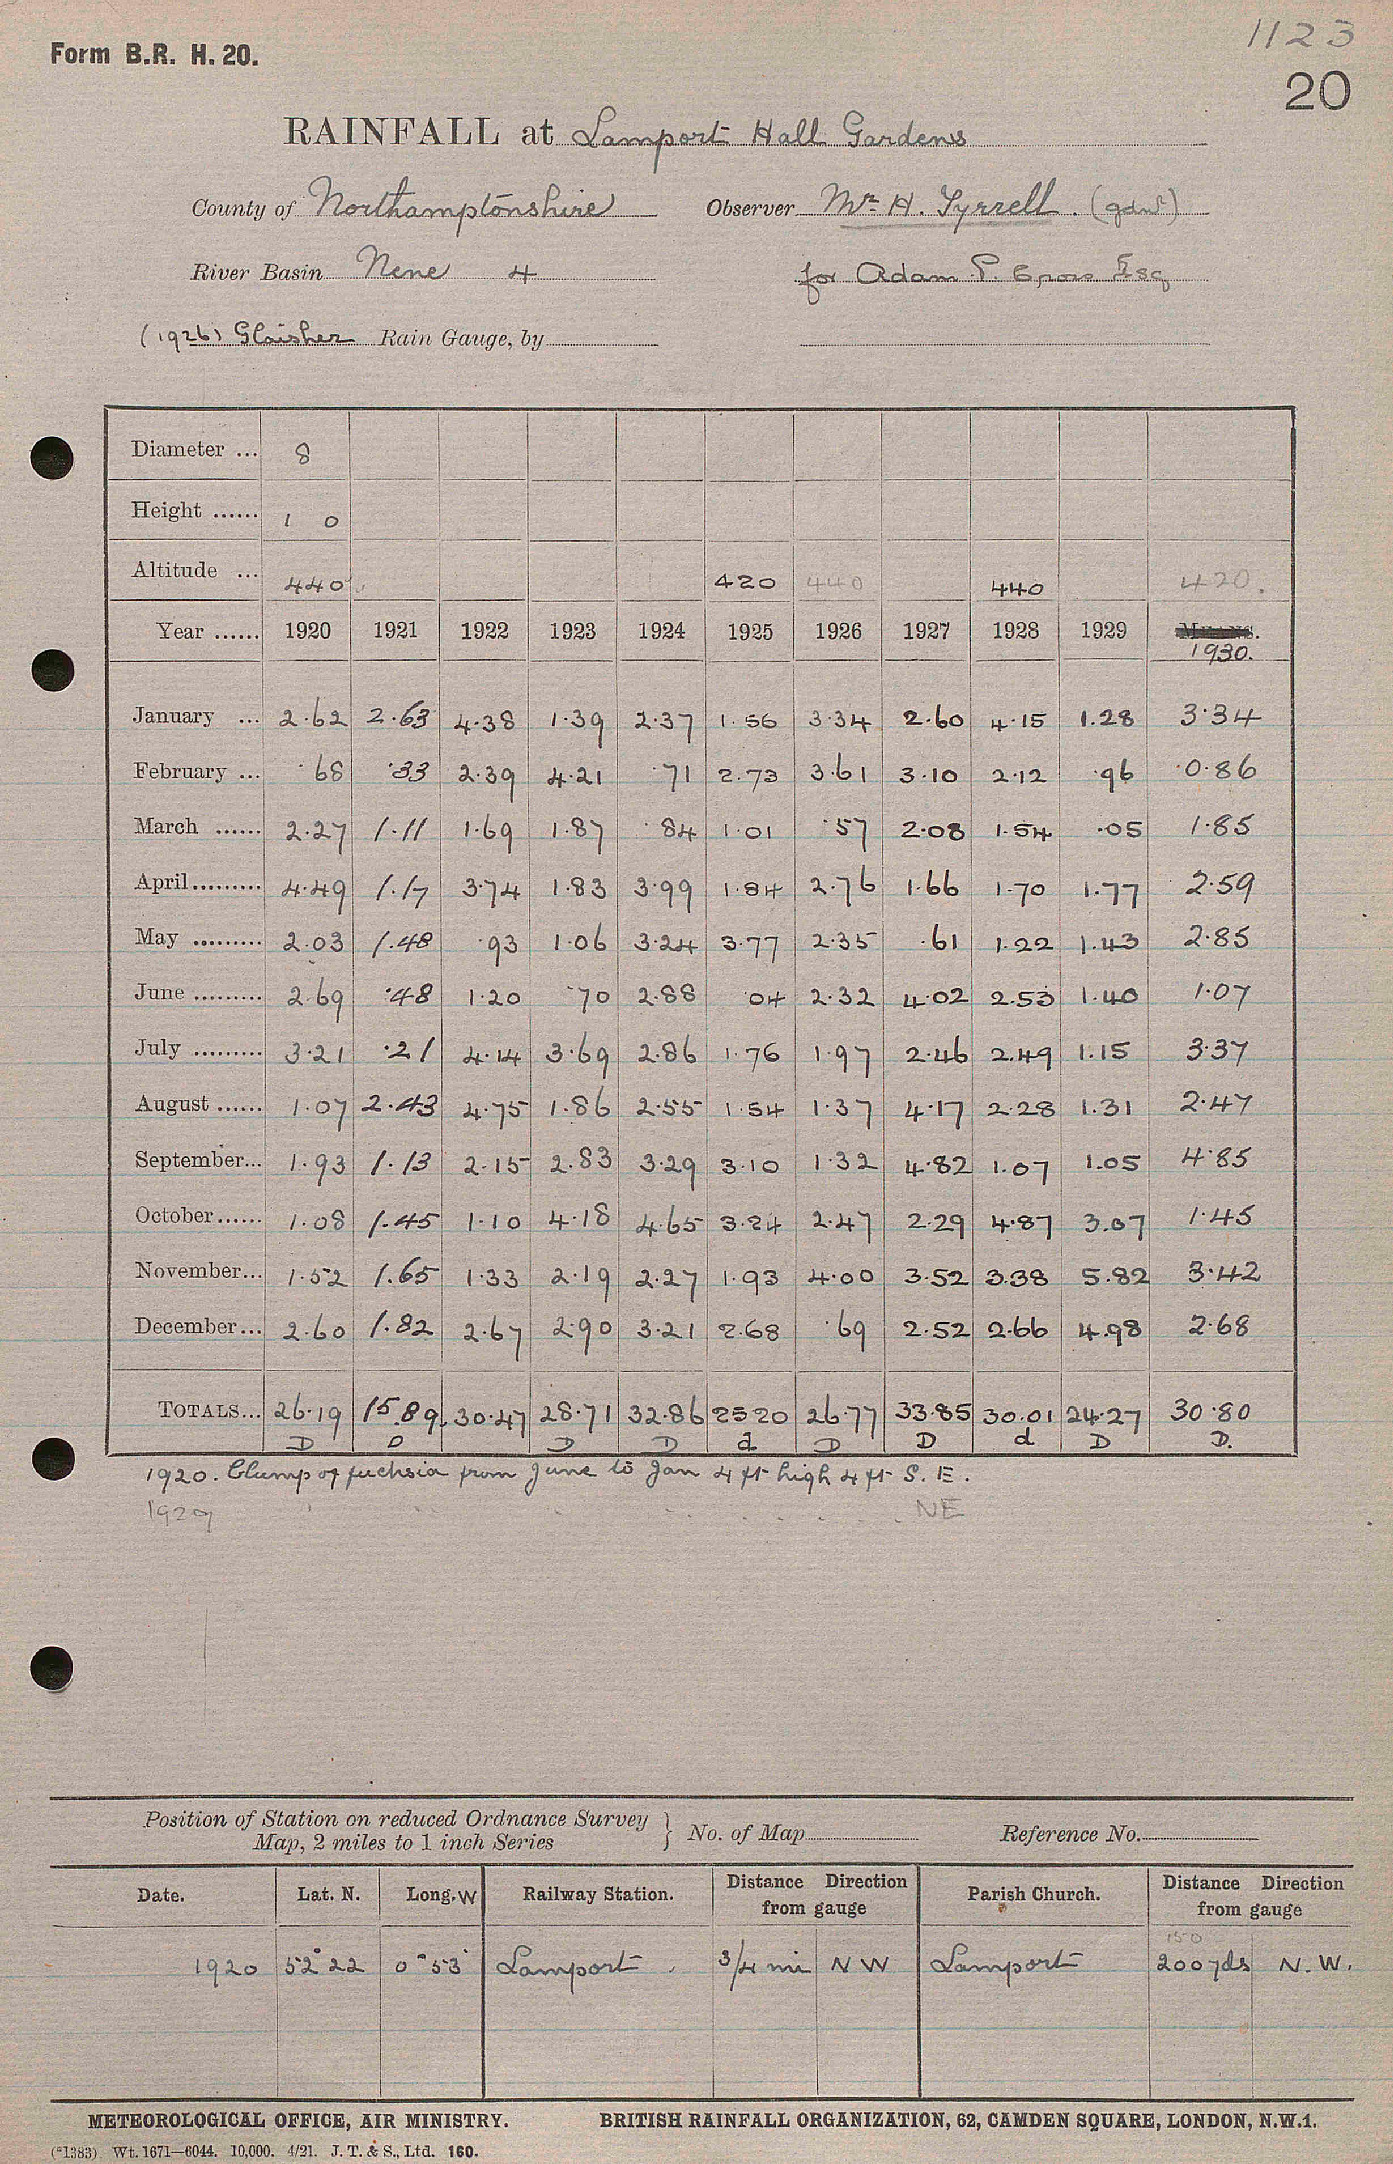 1123
Form B.R. H. 20.
20
RAINFALL at Lamport Hall Gardens
County of Northamptonshire Observer Mr. H. Tyrrell. (gdnr)
River Basin Nene 4 for Adam P. Esq
(1926) Glaisher Rain Gauge, by
Diameter ... 8
Height ...... 1 0
Altitude ... 440 420 440 440 420.
Year ...... 1920 1921 1922 1923 1924 1925 1926 1927 1928 1929 MEANS.
1930.
January ... 2.62 2.63 4.38 1.39 2.37 1.56 3.34 2.60 4.15 1.28 3.34
February ... .68 .33 2.39 4.21 .71 2.73 3.61 3.10 2.12 .96 0.86
March ...... 2.27 1.11 1.69 1.87 .84 1.01 .57 2.08 1.54 .05 1.85
April......... 4.49 1.17 3.74 1.83 3.99 1.84 2.76 1.66 1.70 1.77 2.59
May ......... 2.03 1.48 .93 1.06 3.24 3.77 2.35 .61 1.22 1.43 2.85
June ......... 2.69 .48 1.20 .70 2.88 .04 2.32 4.02 2.53 1.40 1.07
July ......... 3.21 .21 4.14 3.69 2.86 1.76 1.97 2.46 2.49 1.15 3.37
August ...... 1.07 2.43 4.75 1.86 2.55 1.54 1.37 4.17 2.28 1.31 2.47
September... 1.93 1.13 2.15 2.83 3.29 3.10 1.32 4.82 1.07 1.05 4.85
October...... 1.08 1.45 1.10 4.18 4.65 3.24 2.47 2.29 4.87 3.07 1.45
November... 1.52 1.65 1.33 2.19 2.27 1.93 4.00 3.52 3.38 5.82 3.42
December... 2.60 1.82 2.67 2.90 3.21 2.68 .69 2.52 2.66 4.98 2.68
TOTALS... 26.19 15.89 30.47 28.71 32.86 25.20 26.77 33.85 30.01 24.27 30.80
D D D D d D D d D D.
1920. Clump of fuchsia from June to Jan 4 ft high 4 ft S.E.
1929 NE
Position of Station on reduced Ordnance Survey
Map, 2 miles to 1 inch Series } No. of Map Reference No.
Date. Lat. N. Long. W Railway Station. Distance from gauge Direction Parish Church. Distance from gauge Direction
150
1920 52° 22 0° 53' Lamport 3/4 mi NW Lamport 200 yds N.W.
METEOROLOGICAL OFFICE, AIR MINISTRY. BRITISH RAINFALL ORGANIZATION, 62, CAMDEN SQUARE, LONDON, N.W.1.
(*1383) Wt. 1671—6044. 10,000. 4/21. J. T. & S., Ltd. 160.